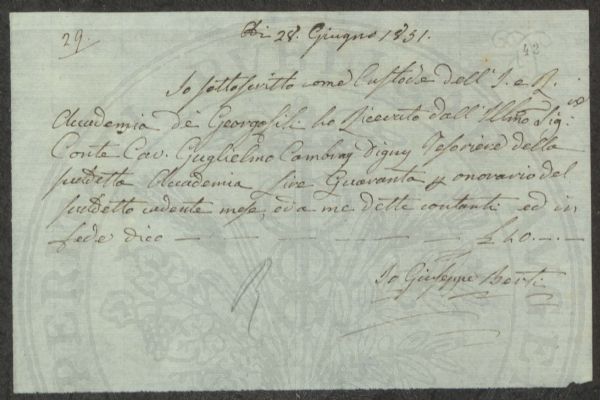 29.
Di 28. Giugno 1831.
42
Io sottoscritto come Custode dell' I. e R.
Accademia de' Georgofili ho Ricevuto dall' Illmo Sig.re
Conte Cav. Guglielmo Cambray Digny Tesoriere della
suddetta Accademia Lire Quaranta p onorario del
suddetto cadente mese, ed a me dette contanti ed in
fede dico — — — — — £ 40. — . —
Io Giuseppe Berti